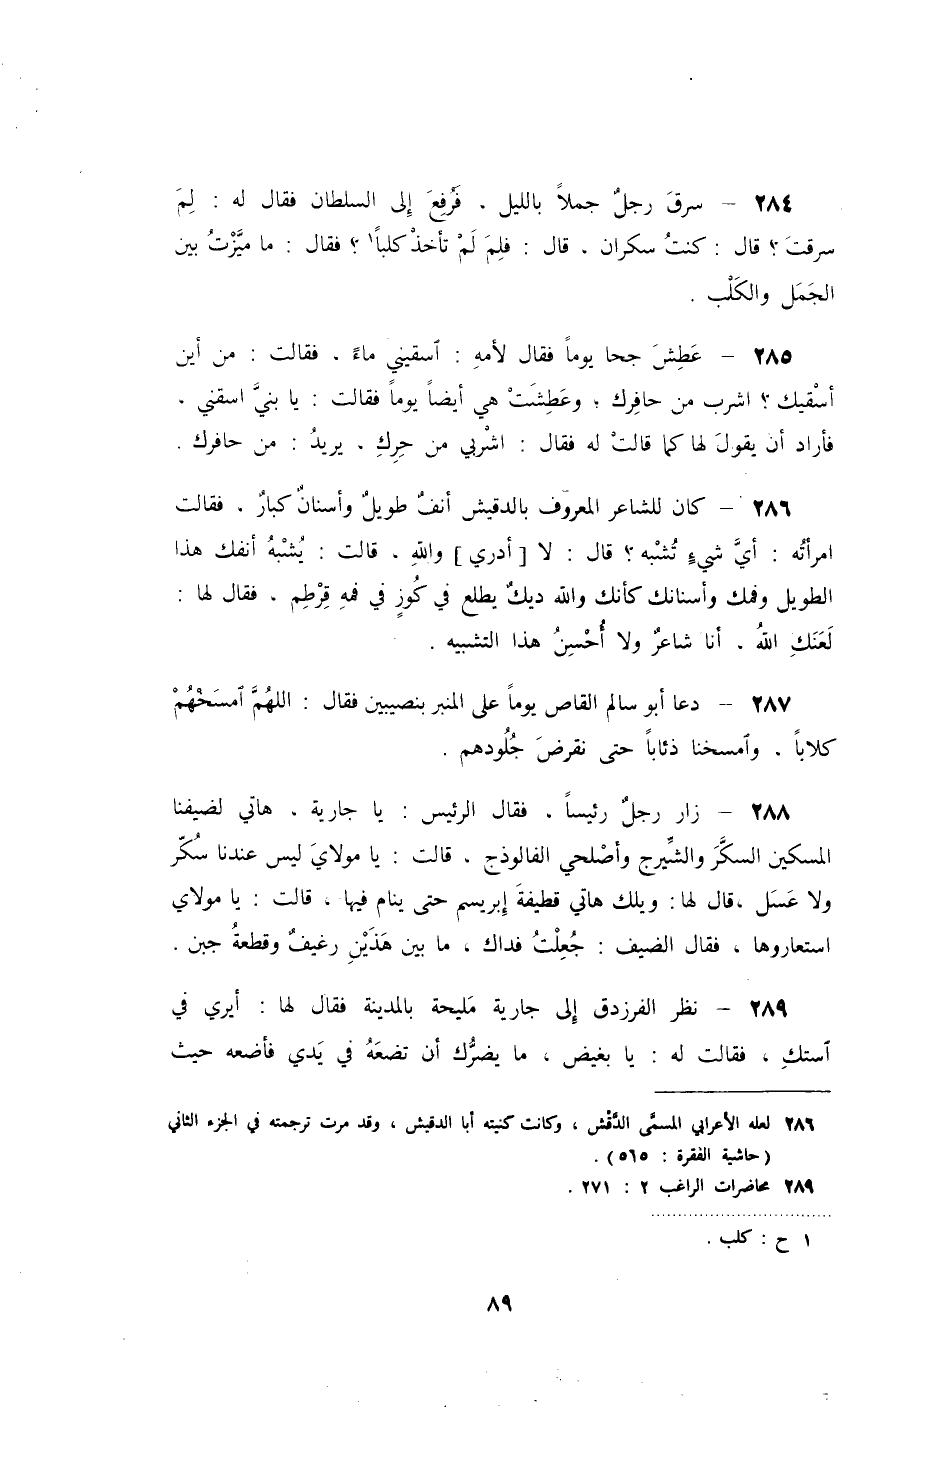 ٢٨٤ – سرقَ رجلٌ جملاً بالليل . فَرُفِعَ إلى السلطان فقال له : لِمَ
سرقتَ ؟ قال : كنتُ سكران . قال : فلِمَ لَمْ تأخذْ كلباً١ ؟ فقال : ما ميَّزْتُ بين
الجَمَل والكَلْب .
٢٨٥ – عَطِشَ جحا يوماً فقال لأمهِ : آسقيني ماءً . فقالت : من أين
أسْقيك ؟ اشرب من حافِرك ؛ وعَطِشَتْ هي أيضاً يوماً فقالت : يا بنيَّ اسقني .
فأراد أن يقولَ لها كما قالتْ له فقال : اشْربي من حِرِكِ . يريدُ : من حافرك .
٢٨٦ – كان للشاعر المعروف بالدقيش أنفٌ طويلٌ وأسنانٌ كبارٌ . فقالت
امرأتُه : أيَّ شيءٍ تُشْبه ؟ قال : لا [ أدري ] واللهِ . قالت : يُشْبهُ أنفك هذا
الطويل وفمك وأسنانك كأنك والله ديكٌ يطلع في كُوزٍ في فمهِ قِرْطِم . فقال لها :
لَعَنَكِ اللهُ . أنا شاعرٌ ولا أُحْسِنُ هذا التشبيه .
٢٨٧ – دعا أبو سالم القاص يوماً على المنبر بنصيبين فقال : اللهُمَّ آمسَخْهُمْ
كلاباً . وآمسخنا ذئاباً حتى نقرضَ جُلُودهم .
٢٨٨ – زار رجلٌ رئيساً . فقال الرئيس : يا جارية . هاتي لضيفنا
المسكين السكَّرَ والشِّيرج وأصْلحي الفالوذج . قالت : يا مولايَ ليس عندنا سُكّر
ولا عَسَل ، قال لها : ويلك هاتي قطيفةَ إبريسم حتى ينام فيها ، قالت : يا مولاي
استعاروها ، فقال الضيف : جُعِلْتُ فداك ، ما بين هَذَيْنِ رغيفٌ وقطعةُ جبن .
٢٨٩ – نظر الفرزدق إلى جارية مَليحة بالمدينة فقال لها : أيري في
آستكِ ، فقالت له : يا بغيض ، ما يضرُّك أن تضعَهُ في يَدي فأضعه حيث
٢٨٦ لعله الأعرابي المسمَّى الدُّقْش ، وكانت كنيته أبا الدقيش ، وقد مرت ترجمته في الجزء الثاني
(حاشية الفقرة : ٥٦٥) .
٢٨٩ محاضرات الراغب ٢ : ٢٧١ .
١ ح : كلب .
٨٩